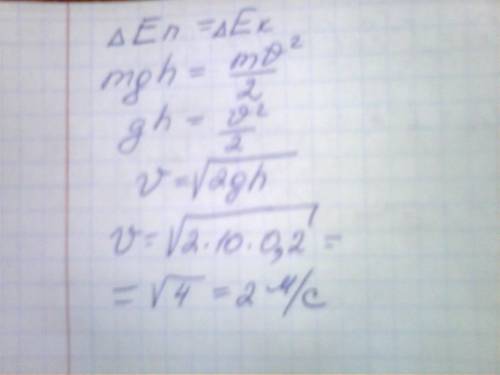 ΔEп = ΔEк
mgh = mϑ²/2
gh = ϑ²/2
ϑ = √2gh
ϑ = √2·10·0,2 =
= √4 = 2 м/с